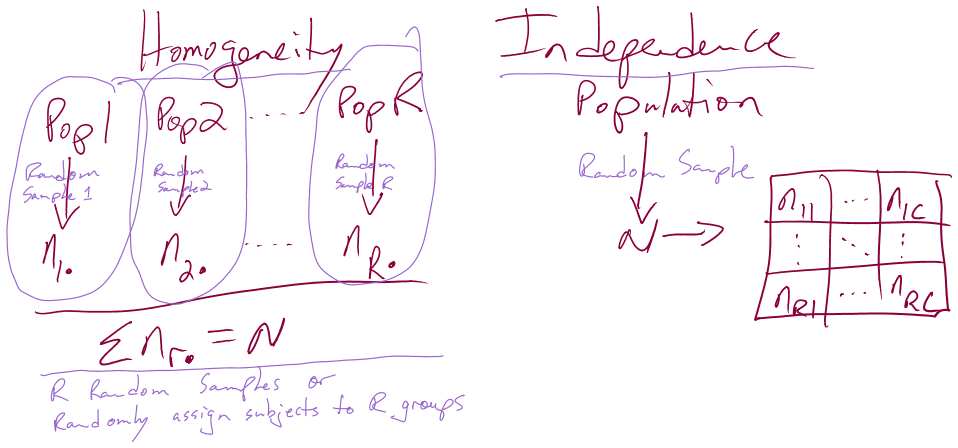 Homogeneity
Pop1 Pop2 ..... Pop R
Random Sample 1
Random Sample 2
Random Sample R
n1. n2. ..... nR.
Σ nr. = N
R Random Samples or
Randomly assign subjects to R groups
Independence
Population
Random Sample
N →
n11 ... n1C
⋮ ⋱ ⋮
nR1 ... nRC